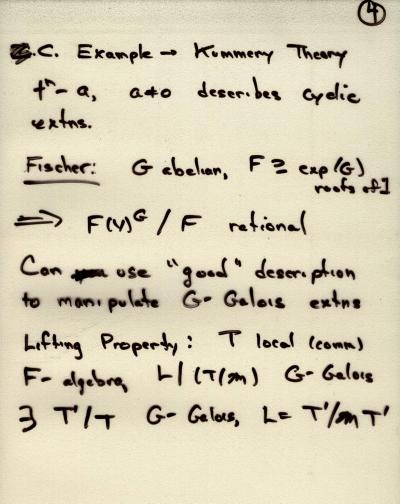 ④
C. Example → Kummery Theory
tⁿ - a, a≠0 describes cyclic
extns.
Fischer: G abelian, F ⊇ exp(G)
roots of 1
⟹ F(V)ᴳ / F rational
Can use "good" description
to manipulate G-Galois extns
Lifting Property: T local (comm)
F-algebra, L/(T/m) G-Galois
∃ T'/T G-Galois, L = T'/mT'